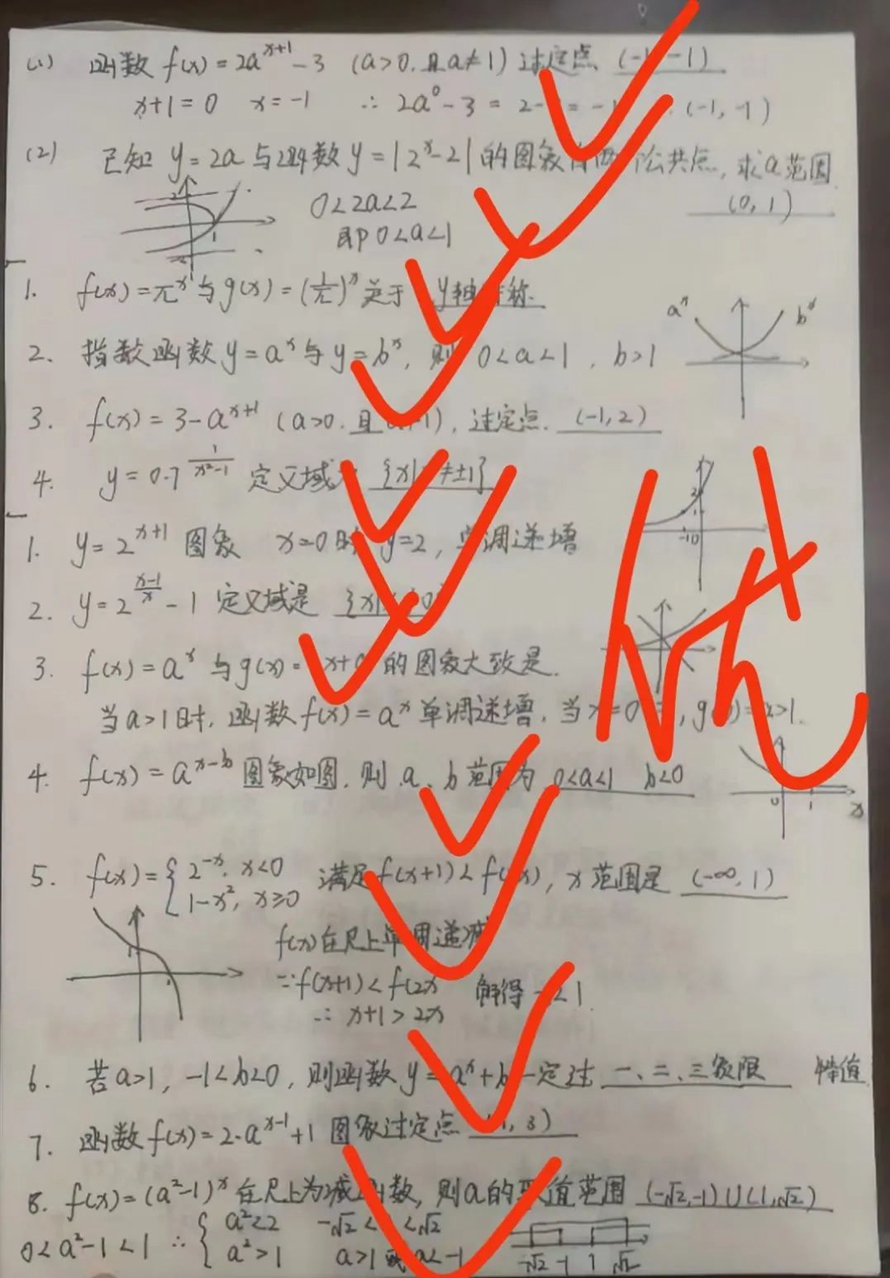 (1) 函数 f(x) = 2a^{x+1} - 3 (a>0, 且a≠1) 过定点 (-1, -1)
x+1=0 x=-1 ∴ 2a^0-3 = 2- = - (-1, -1)
(2) 已知 y=2a 与函数 y=|2^x-2| 的图象有两个公共点, 求a范围
0<2a<2 (0, 1)
即 0<a<1
1. f(x)=π^x 与 g(x)=(1/π)^x 关于 y轴对称
a^x b^x
2. 指数函数 y=a^x 与 y=b^x, 则 0<a<1, b>1
3. f(x)=3-a^{x+1} (a>0, 且 ), 过定点 (-1, 2)
4. y=0.7^{1/(x²-1)} 定义域 {x| ≠±1}
1. y=2^{x+1} 图象 x=0时 y=2, 单调递增
2. y=2^{(x-1)/x} - 1 定义域是 {x| 0
3. f(x)=a^x 与 g(x)= x+ 的图象大致是.
当 a>1时, 函数 f(x)=a^x 单调递增, 当 x=0 , g( )= >1.
4. f(x)=a^{x-b} 图象如图, 则 a、b 范围为 0<a<1 b<0
0 1 x
5. f(x)={2^{-x}, x<0 1-x², x≥0 满足 f(x+1)<f( x), x 范围是 (-∞, 1)
f(x)在R上单调递减
∵f(x+1)<f(2x 解得 <1
∴ x+1>2x
6. 若a>1, -1<b<0, 则函数 y=a^x+b 一定过 一、二、三象限 特值
7. 函数 f(x)=2·a^{x-1}+1 图象过定点 (1, 3)
8. f(x)=(a²-1)^x 在R上为减函数, 则a的取值范围 (-√2,-1)∪(1,√2)
0<a²-1<1 ∴ {a²<2 a²>1 -√2< <√2 a>1 或 a<-1
-√2 -1 1 √2
优